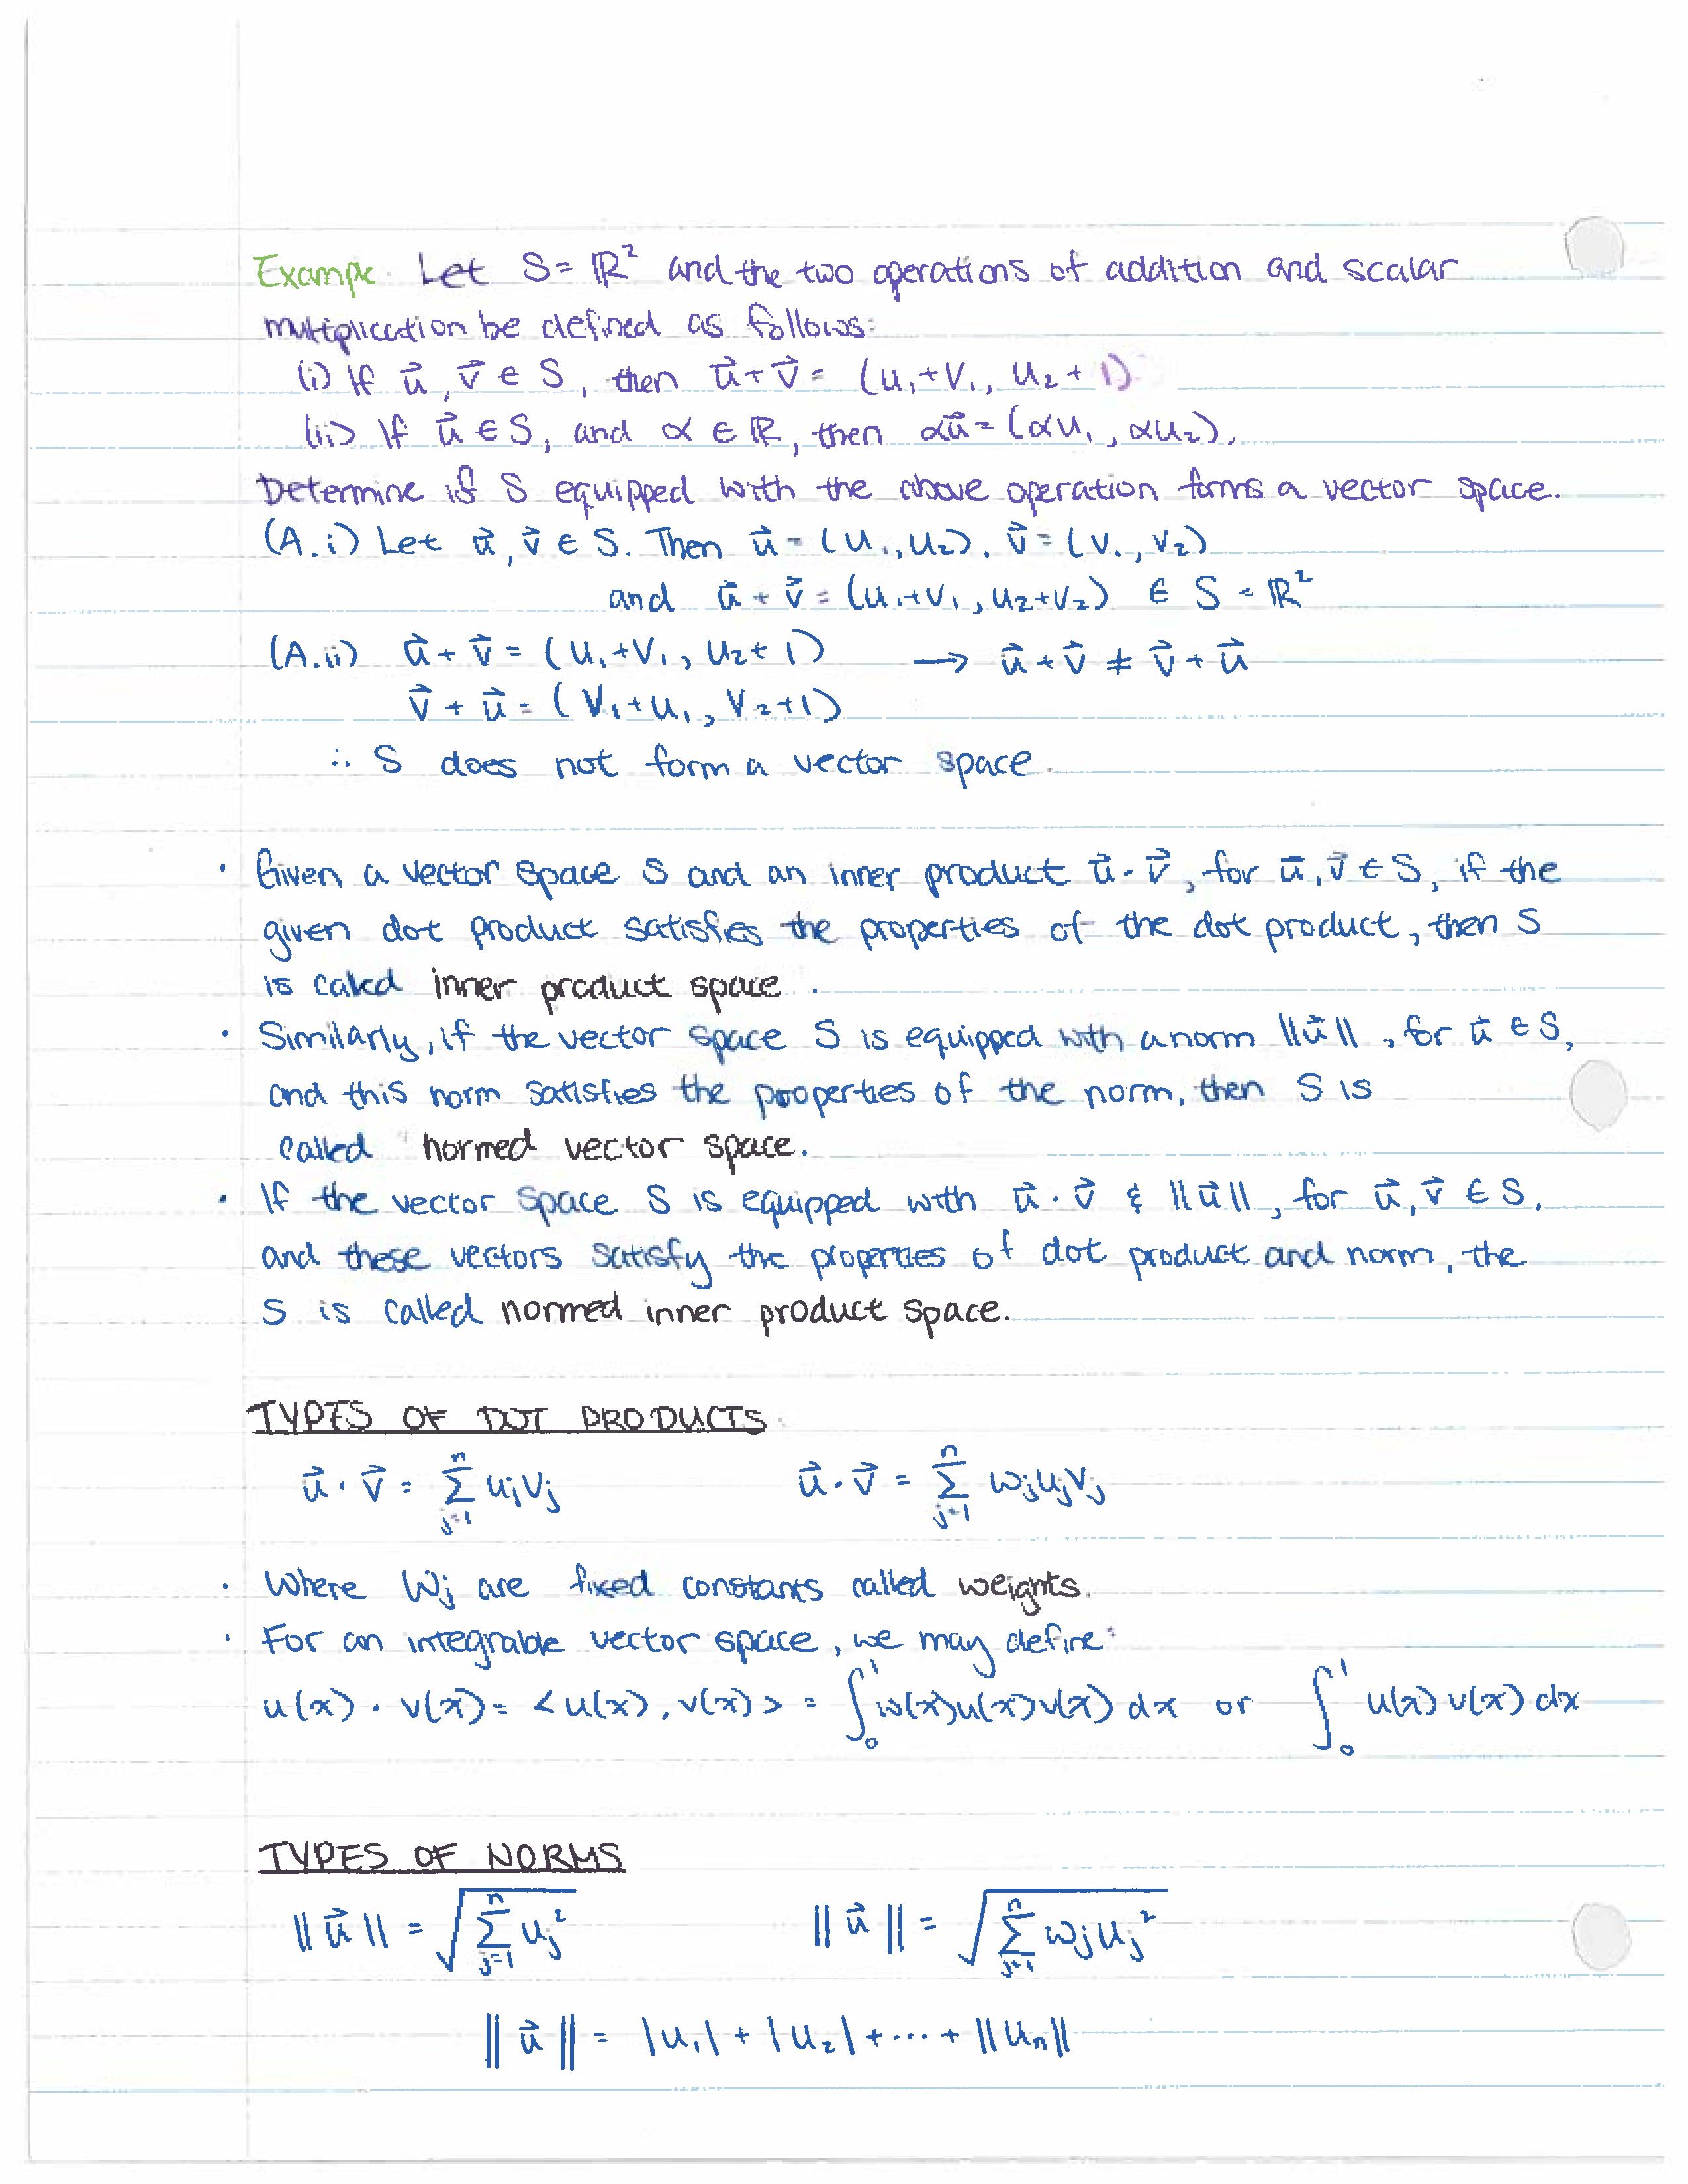 Example. Let S = ℝ² and the two operations of addition and scalar
multiplication be defined as follows:
(i) If u⃗, v⃗ ∈ S, then u⃗ + v⃗ = (u₁+v₁, u₂+1)
(ii) If u⃗ ∈ S, and α ∈ ℝ, then αu⃗ = (αu₁, αu₂).
Determine if S equipped with the above operation forms a vector space.
(A.i) Let u⃗, v⃗ ∈ S. Then u⃗ = (u₁, u₂). v⃗ = (v₁, v₂)
and u⃗ + v⃗ = (u₁+v₁, u₂+v₂) ∈ S = ℝ²
(A.ii) u⃗ + v⃗ = (u₁+v₁, u₂+1) → u⃗ + v⃗ ≠ v⃗ + u⃗
v⃗ + u⃗ = (v₁+u₁, v₂+1)
∴ S does not form a vector space.
· Given a vector space S and an inner product u⃗·v⃗, for u⃗, v⃗ ∈ S, if the
given dot product satisfies the properties of the dot product, then S
is called inner product space.
· Similarly, if the vector space S is equipped with a norm ‖u⃗‖, for u⃗ ∈ S,
and this norm satisfies the properties of the norm, then S is
called normed vector space.
· If the vector space S is equipped with u⃗·v⃗ & ‖u⃗‖, for u⃗, v⃗ ∈ S,
and these vectors satisfy the properties of dot product and norm, the
S is called normed inner product space.
TYPES OF DOT PRODUCTS
u⃗·v⃗ = ∑ⱼ₌₁ⁿ uⱼvⱼ u⃗·v⃗ = ∑ⱼ₌₁ⁿ wⱼuⱼvⱼ
· Where wⱼ are fixed constants called weights.
· For an integrable vector space, we may define:
u(x) · v(x) = <u(x), v(x)> = ∫₀¹ w(x)u(x)v(x) dx or ∫₀¹ u(x) v(x) dx
TYPES OF NORMS
‖u⃗‖ = √(∑ⱼ₌₁ⁿ uⱼ²) ‖u⃗‖ = √(∑ⱼ₌₁ⁿ wⱼuⱼ²)
‖u⃗‖ = |u₁| + |u₂| + ··· + ‖uₙ‖